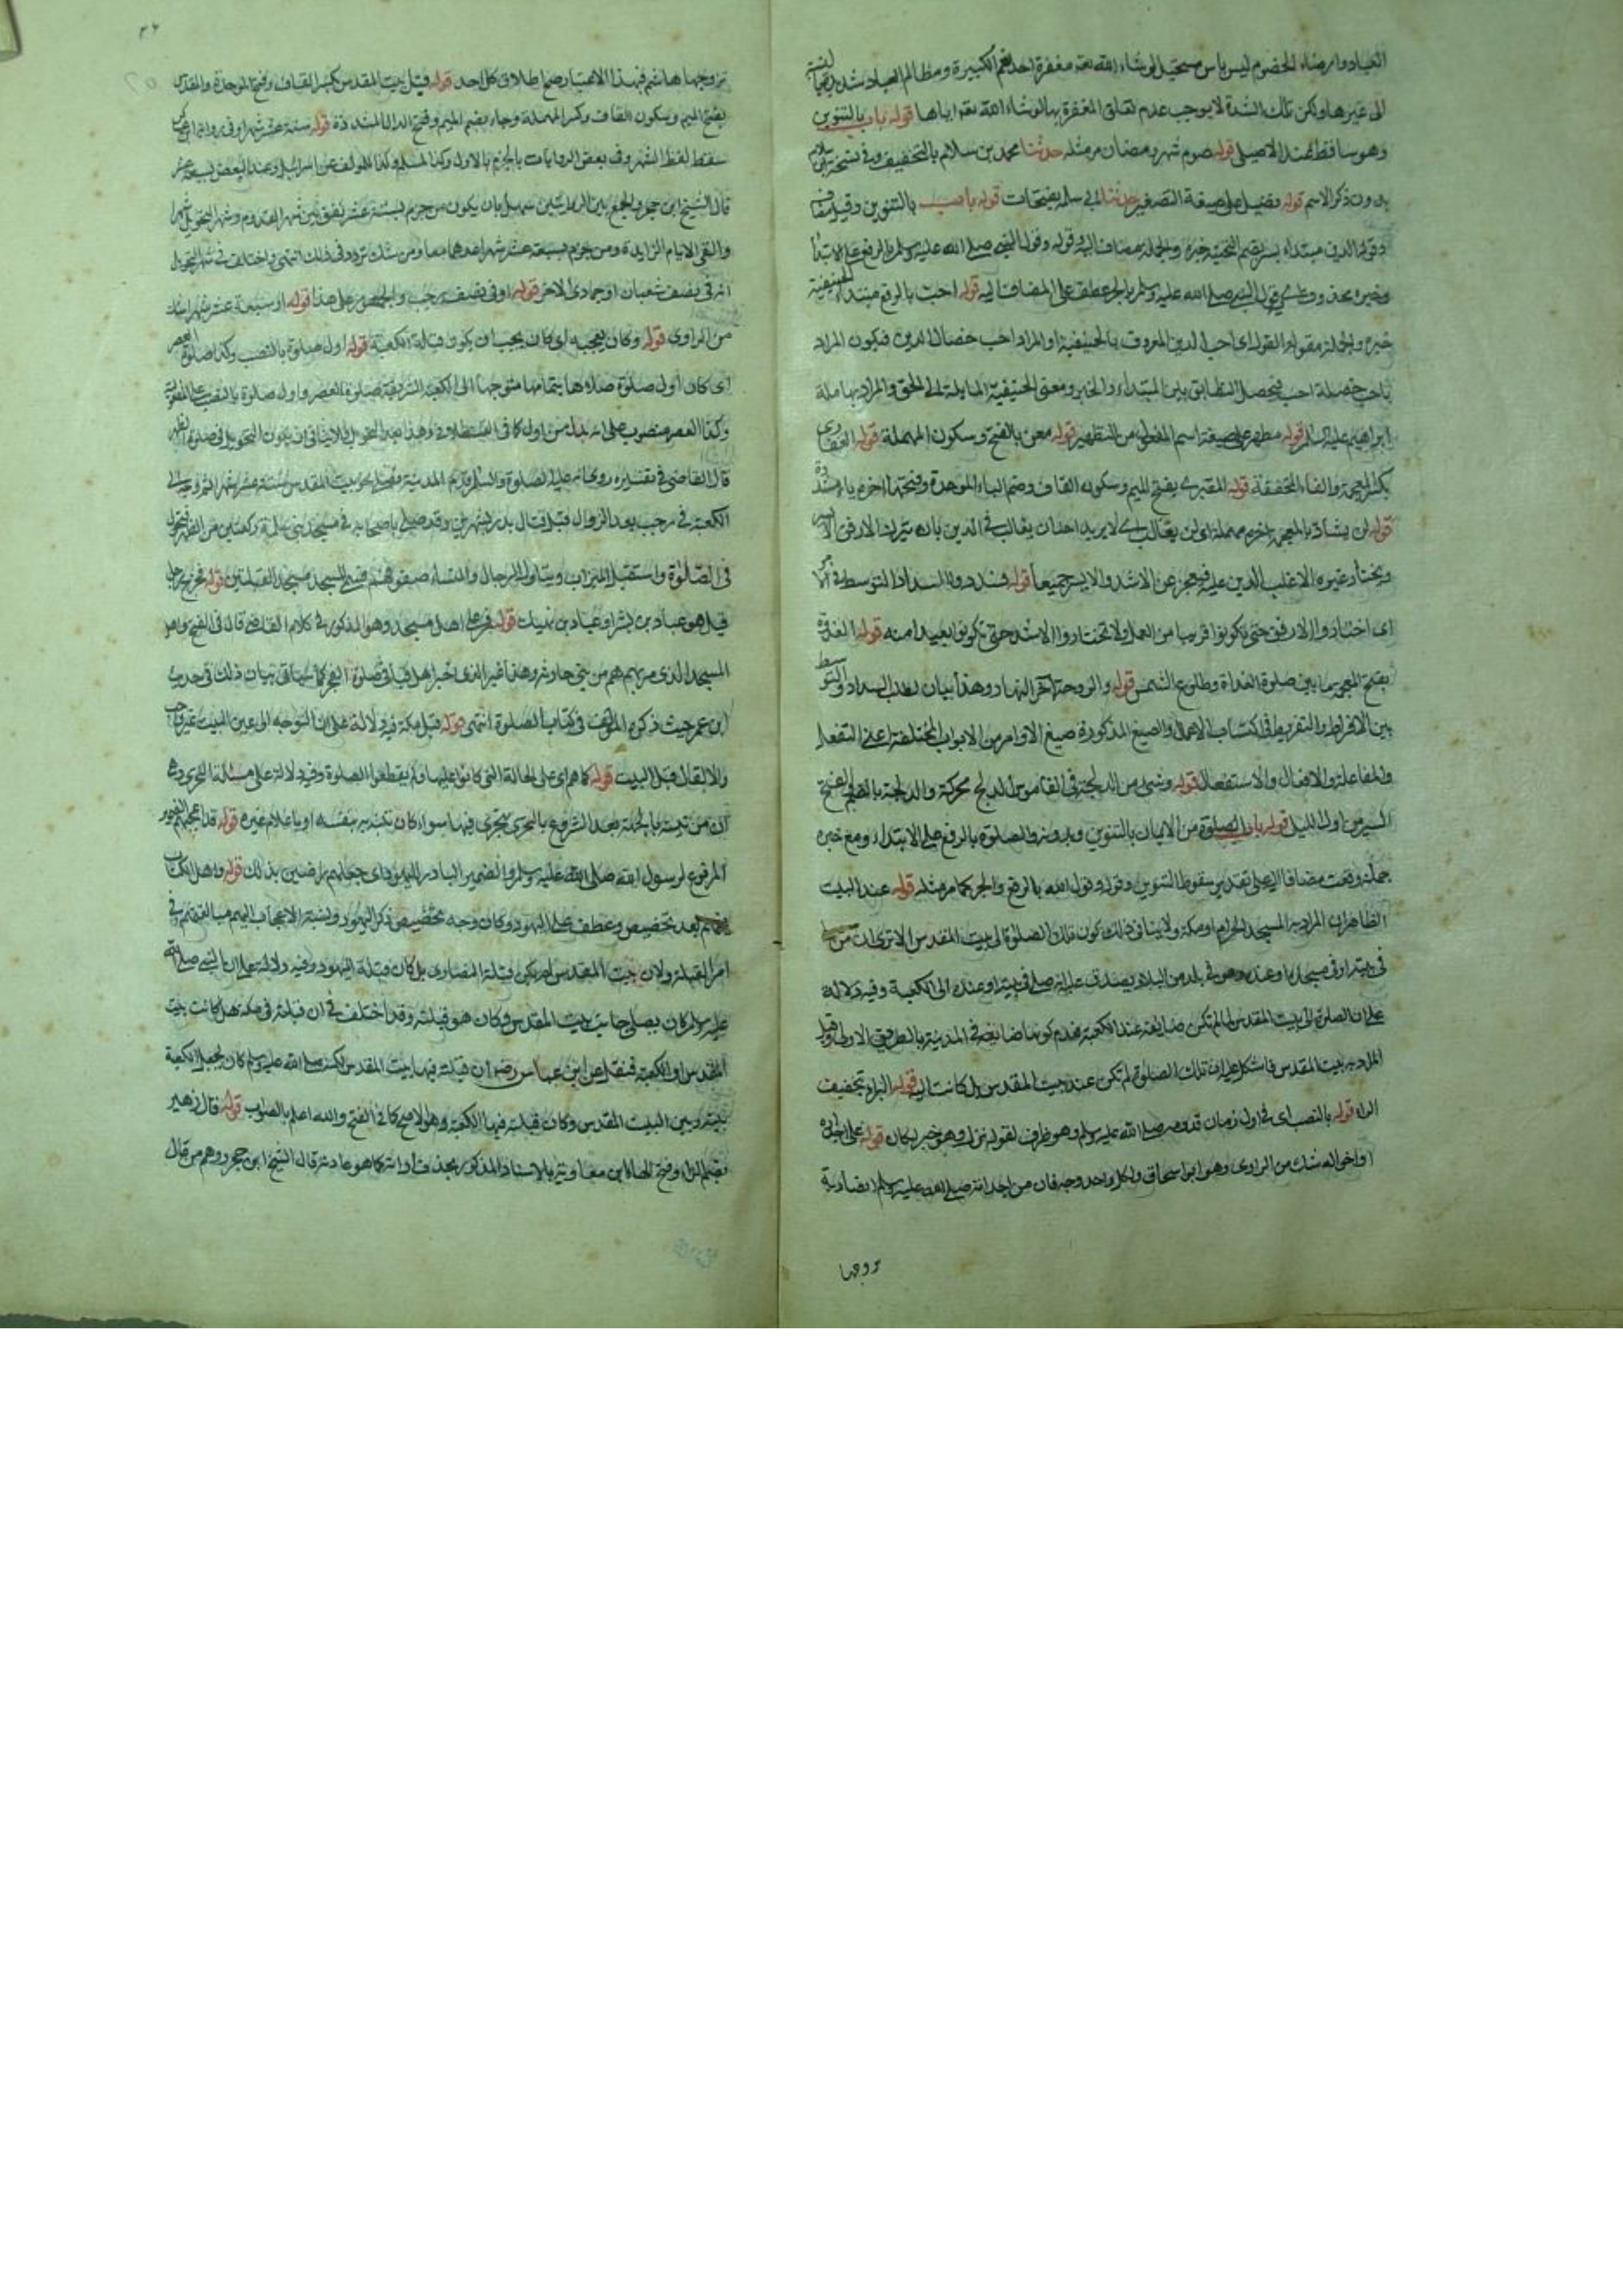 العباد وارضاء الخصوم ليس بامر مستحيل لو شاء الله تعالى مغفرة احدهم الكبيرة ومظالم العباد شديدة
الى غيرها ولكن تلك الشدة لا يوجب عدم تعلق المغفرة بها لو شاء الله تعه اياها قوله باب بالتنوين
وهو ساقط عند الاصيلى قوله صوم شهر رمضان مر مثله حدثنا محمد بن سلام بالتخفيف وفى نسخة ابن سلام
بدون ذكر الاسم قوله فضيل على صيغة التصغير حدثنا ابى سلمه بفتحات قوله باب بالتنوين وقيل مضاف
وقوله الدين مبتداء يسر بضم التحتية خبره والجملة مضاف اليه وقوله وقول النبى صلى الله عليه وسلم بالرفع على الابتداء
وخبره محذوف اى قول النبى صلى الله عليه وسلم بالجر عطف على المضاف اليه قوله احب بالرفع مبتداء الحنيفية
خبره والجملة مقولة القول اى احب الدين المعروف بالحنيفية او المراد احب خصال الدين فيكون المراد
باحب خصلة احب فيحصل التطابق بين المبتداء والخبر ومعنى الحنيفية المايلة الى الحق والمراد بها ملة
ابراهيم عليه السلام قوله مطهر على صيغة اسم المفعول من التطهير قوله معن بالفتح وسكون المهملة قوله الغفارى
بكسر المعجمة والفاء المخففة قوله المقبرى بفتح الميم وسكون القاف وضم الباء الموحدة وفتحها اخره ياء مشددة
قوله لن يشاد بالمعجمة اخره مهملة اى لن يغالب اى لا يريد احد ان يغالب فى الدين بان يترك الارفق الايسر
ويختار غيره الا غلب الدين عليه فيعجز عن الاشد والايسر جميعا قوله فسددوا السداد التوسط فى الامر
اى اختاروا الارفق حتى يكونوا قريبا من العمل ولا تختاروا الاشد حتى تكونوا بعيدا منه قوله الغدوة
بفتح المعجمة ما بين صلوة الغداة وطلوع الشمس قوله والروحة آخر النهار وهذا بيان لطلب السداد والتوسط
بين الافراط والتفريط فى اكتساب الاعمال والصيغ المذكورة صيغ الاوامر من الابواب المختلفة اعنى التفعيل
والمفاعلة والافعال والاستفعال قوله وشىء من الدلجة فى القاموس الدلج محركة والدلجة بالضم والفتح
السير من اول الليل قوله باب الصلوة من الايمان بالتنوين وبدونه والصلوة بالرفع على الابتداء ومع خبره
جملة وقعت مضافا اليه على تقدير سقوط التنوين وقوله وقول الله بالرفع والجر كما مر مثله قوله عند البيت
الظاهر ان المراد به المسجد الحرام او مكة ولا ينافى ذلك كون تلك الصلوة الى بيت المقدس الا ترى ان من صلى
فى بيته او فى مسجد او عنده وهو فى بلد من البلاد يصدق عليه انه صلى فى بيته او عنده الى الكعبة وفيه دلالة
على ان الصلوة الى بيت المقدس لما لم تكن ضايعة عند الكعبة فعدم كونها ضايعة فى المدينة بالطريق الاولى وقيل
المراد به بيت المقدس فاشكل عليه ان تلك الصلوة لم تكن عند بيت المقدس بل كانت اليه قوله البراء بتخفيف
الراء قوله بالنصب اى فى اول زمان قدومه صلى الله عليه وسلم وهو ظرف لقوله نزل وهو خبر لكان قوله على اجداده
او اخواله شك من الراوى وهو ابو اسحاق ولكل واحد وجه فان من اجداده صلى الله عليه وسلم انصارية
تزوجها
تزوجها هاشم فبهذا الاعتبار صح اطلاق كل احد قوله قبل بيت المقدس بكسر القاف وفتح الموحدة والمقدس
بفتح الميم وسكون القاف وكسر المهملة وجاء بضم الميم وفتح الدال المشددة قوله ستة عشر شهرا وفى رواية
سقط لفظ الشهر وفى بعض الروايات بالجزم بالاول وكذا لمسلم وكذا للمولف عن اسرائيل وعند البعض سبعة عشر
قال الشيخ ابن حجر والجمع بين الروايتين سهل بان يكون من جزم بستة عشر لفق بين شهر القدوم وشهر التحويل شهرا
والغى الايام الزايدة ومن جزم بسبعة عشر شهرا عدهما معا ومن شك تردد فى ذلك انتهى واختلف فى شهر التحويل
انه فى نصف شعبان او جمادى الاخر قوله او فى نصف رجب والجمهور على هذا قوله او سبعة عشر شهرا شك
من الراوى قوله وكان يعجبه اى كان يحب ان يكون قبلة الكعبة قوله اول صلوة بالنصب وكذا صلوة العصر
اى كان اول صلوة صلاها بتمامها متوجها الى الكعبة الشريفة صلوة العصر واول صلوة بالنصب على المفعولية
وكذا العصر منصوب على انه بدل من اول كما فى القسطلانى وهذا بعد التحويل فلا ينافى ان يكون التحويل فى صلوة الظهر
قال القاضى فى تفسيره روى انه عليه الصلوة والسلام قدم المدينة فصلى نحو بيت المقدس ستة عشر شهرا ثم وجه الى
الكعبة فى رجب بعد الزوال قبل قتال بدر بشهرين وقد صلى باصحابه فى مسجد بنى سلمة ركعتين من الظهر فتحول
فى الصلوة واستقبل الميزاب وتبادل الرجال والنساء صفوفهم فسمى المسجد مسجد القبلتين قوله فخرج رجل
قيل هو عباد بن بشر او عباد بن نهيك قوله فمر على اهل مسجد وهو المذكور فى كلام القاضى قال فى الفتح واهل
المسجد الذى مر بهم هم من بنى حارثة وهذا غير الذى اخبر اهل قبا فى صلوة الفجر كما سياتى بيان ذلك فى حديث
ابن عمر حيث ذكره المولف فى كتاب الصلوة انتهى قوله قبل مكة فيه دلالة على ان التوجه الى عين البيت غير واجب
والا لقال قبل البيت قوله كما هم اى على الحالة التى كانوا عليها ولم يقطعوا الصلوة وفيه دلالة على مسئلة التحرى وهى
ان من تبينت بالجهة بعد الشروع بالتحرى يتحرى فيها سواء كان بتدبير بنفسه او باعلام غيره قوله قد اعجبهم الضمير
المرفوع لرسول الله صلى الله عليه وسلم والضمير البارز لليهود اى جعلهم راضين بذلك قوله واهل الكتاب
تعميم بعد تخصيص وعطف على اليهود وكان وجه تخصيص ذكر اليهود ونسبة الاعجاب اليهم مبالغتهم فى
امر القبلة ولان بيت المقدس لم يكن قبلة النصارى بل كان قبلة اليهود وفيه دلالة على ان النبى صلى الله
عليه وسلم كان يصلى جانب بيت المقدس وكان هو قبلته وقد اختلف فى ان قبلته فى مكة هل كانت بيت
المقدس او الكعبة فنقل عن ابن عباس رضه ان قبلته فيها بيت المقدس لكنه صلى الله عليه وسلم كان يجعل الكعبة
بينه وبين البيت المقدس وكان قبلته فيها الكعبة وهو الاصح كما فى الفتح والله اعلم بالصواب قوله قال زهير
بضم الزاء وفتح الهاء ابن معاوية بالاسناد المذكور بحذف اداته كما هو عادته قال الشيخ ابن حجر ووهم من قال